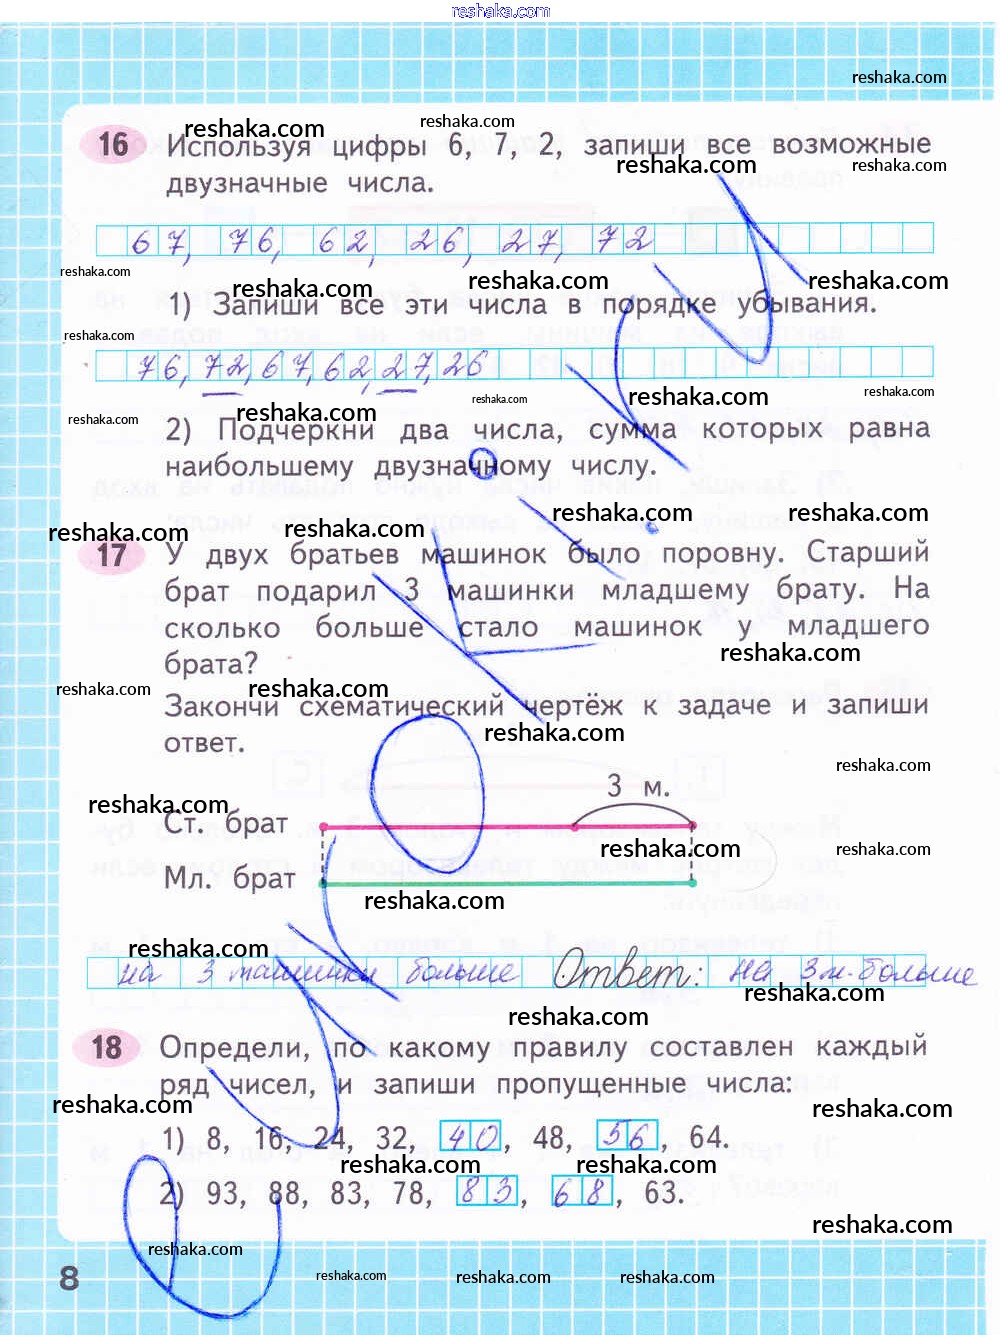 reshaka.com
reshaka.com
16 Используя цифры 6, 7, 2, запиши все возможные
двузначные числа.
reshaka.com reshaka.com
reshaka.com reshaka.com
67, 76, 62, 26, 27, 72
reshaka.com reshaka.com reshaka.com reshaka.com
1) Запиши все эти числа в порядке убывания.
reshaka.com
76, 72, 67, 62, 27, 26
reshaka.com reshaka.com reshaka.com reshaka.com reshaka.com
2) Подчеркни два числа, сумма которых равна
наибольшему двузначному числу.
reshaka.com reshaka.com reshaka.com reshaka.com
17 У двух братьев машинок было поровну. Старший
брат подарил 3 машинки младшему брату. На
сколько больше стало машинок у младшего
брата?
reshaka.com
reshaka.com reshaka.com
Закончи схематический чертёж к задаче и запиши
ответ.
reshaka.com
reshaka.com
3 м.
reshaka.com
Ст. брат
reshaka.com reshaka.com
Мл. брат
reshaka.com
reshaka.com
на 3 машинки больше Ответ: на 3 м. больше
reshaka.com
reshaka.com
18 Определи, по какому правилу составлен каждый
ряд чисел, и запиши пропущенные числа:
reshaka.com reshaka.com
1) 8, 16, 24, 32, 40, 48, 56, 64.
reshaka.com reshaka.com
2) 93, 88, 83, 78, 83, 68, 63.
reshaka.com
reshaka.com
8
reshaka.com reshaka.com reshaka.com